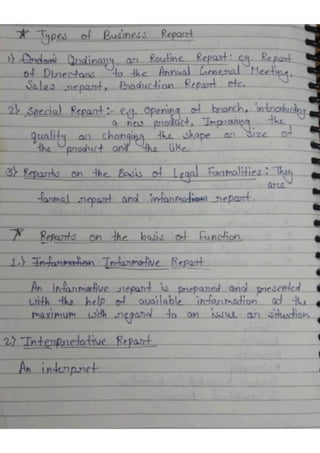 * Types of Business Report
1) Ordinary or Routine Report: eg. Report
of Directors to the Annual General Meeting,
Sales report, Production Report etc.
2) Special Report:- eg. Opening of branch, introducing
a new product, Improving the
quality or changing the shape or size of
the product and the like.
3) Reports on the Basis of Legal Formalities: They
are
formal report and informal report.
* Reports on the basis of Function
1.) Information Informative Report
An informative report is prepared and presented
with the help of available information at the
maximum with regard to an issue or situation
2.) Interpretative Report
An interpret